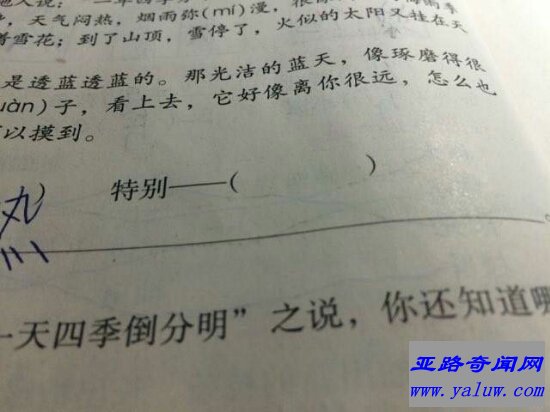 ，天气闷热，烟雨弥(mí)漫，
着雪花；到了山顶，雪停了，火似的太阳又挂在天
是透蓝透蓝的。那光洁的蓝天，像琢磨得很
uàn)子，看上去，它好像离你很远，怎么也
可以摸到。
特别——(　　　)
一天四季倒分明”之说，你还知道哪
亚路奇闻网
www.yaluw.com